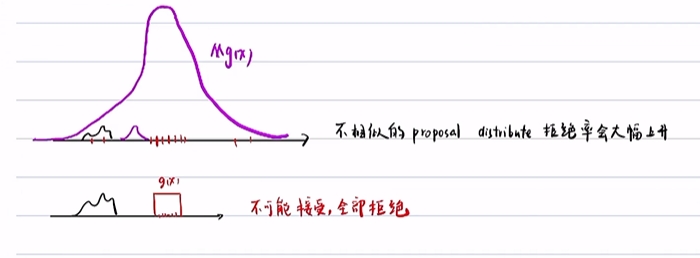 Mg(x)
不相似的 proposal distribute 拒绝率会大幅上升
g(x)
不可能接受,全部拒绝